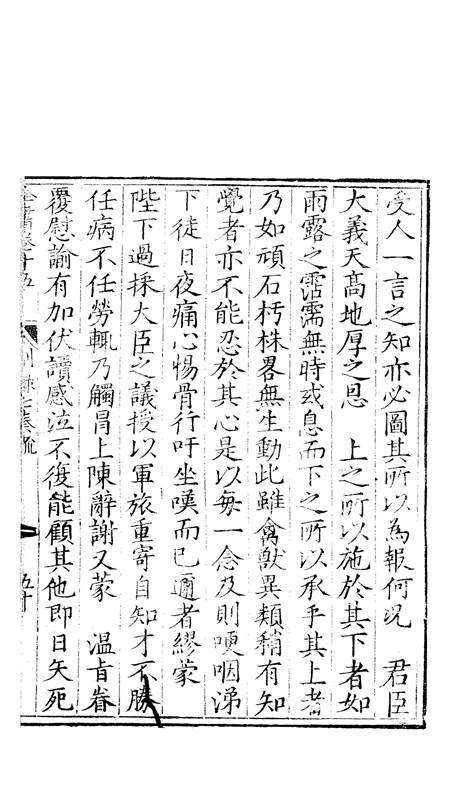 受人一言之知亦必圖其所以為報何况　君臣
大義天髙地厚之恩　上之所以施於其下者如
雨露之霑濡無時或息而下之所以承乎其上者
乃如頑石朽株畧無生動此雖禽獸異類稍有知
覺者亦不能忍於其心是以每一念及則哽咽涕
下徒日夜痛心惕骨行吁坐嘆而已邇者繆蒙
陛下過採大臣之議授以軍旅重寄自知才不勝
任病不任勞輒乃觸冒上陳辭謝又蒙　溫旨眷
覆慰諭有加伏讀感泣不復能顧其他即日矢死
全書卷十五　別錄七奏疏　五十